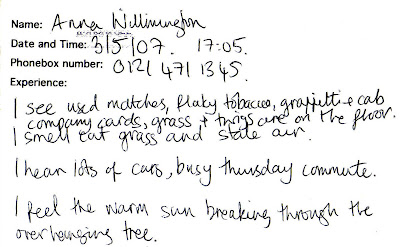 Name: Anna Willinington
Date and Time: 3/5/07. 17:05.
Phonebox number: 0121 471 1345.
Experience:
I see used matches, flaky tobacco, graffitti + cab
company cards, grass + twigs are on the floor.
I smell cut grass and stale air.
I hear lots of cars, busy thursday commute.
I feel the warm sun breaking through the
overhanging tree.